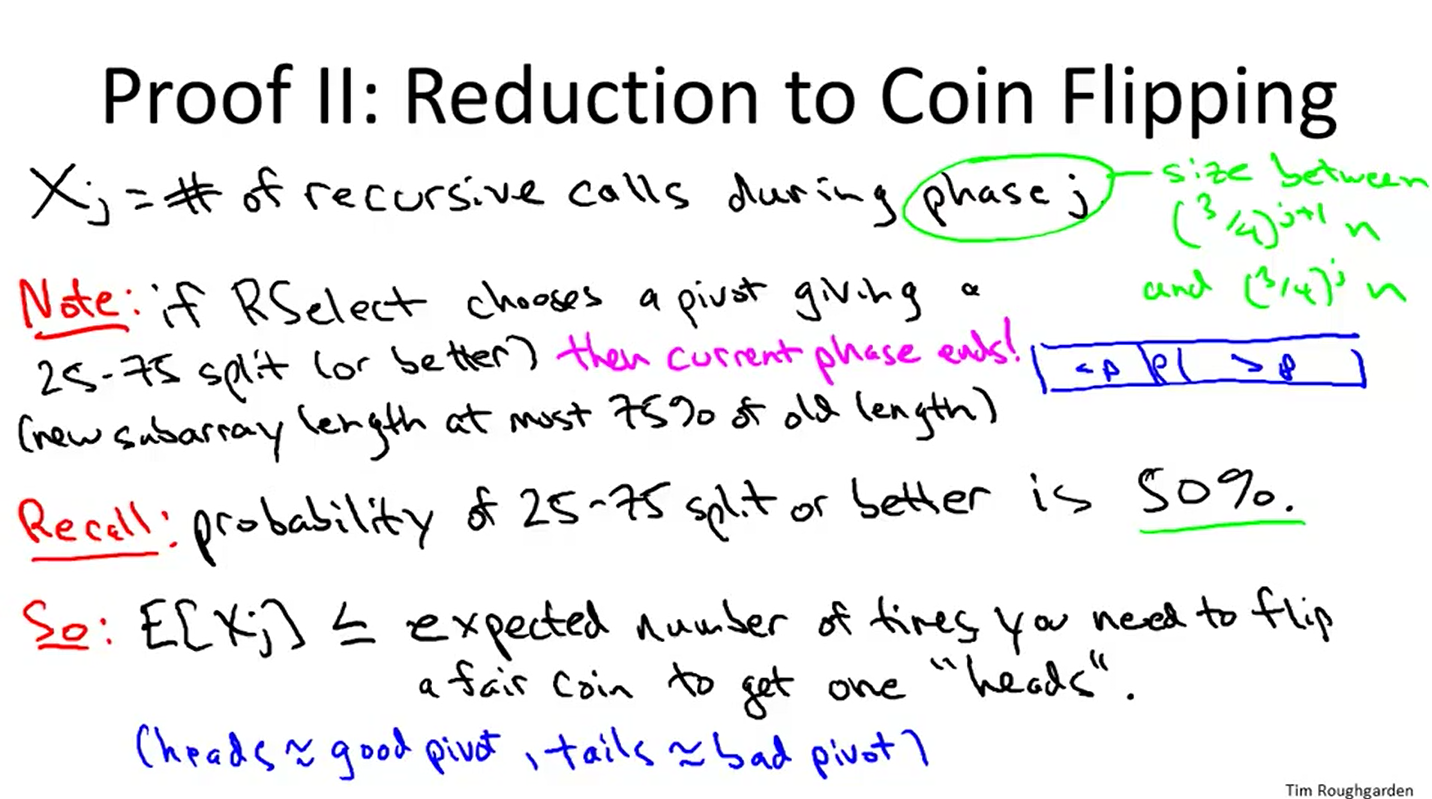 Proof II: Reduction to Coin Flipping
Xj = # of recursive calls during phase j
size between
(3/4)^j+1 n
and (3/4)^j n
Note: if RSelect chooses a pivot giving a
25-75 split (or better) then current phase ends!
<p | p | >p
(new subarray length at most 75% of old length)
Recall: probability of 25-75 split or better is 50%.
So: E[Xj] ≤ expected number of times you need to flip
a fair coin to get one "heads".
(heads ≈ good pivot, tails ≈ bad pivot)
Tim Roughgarden